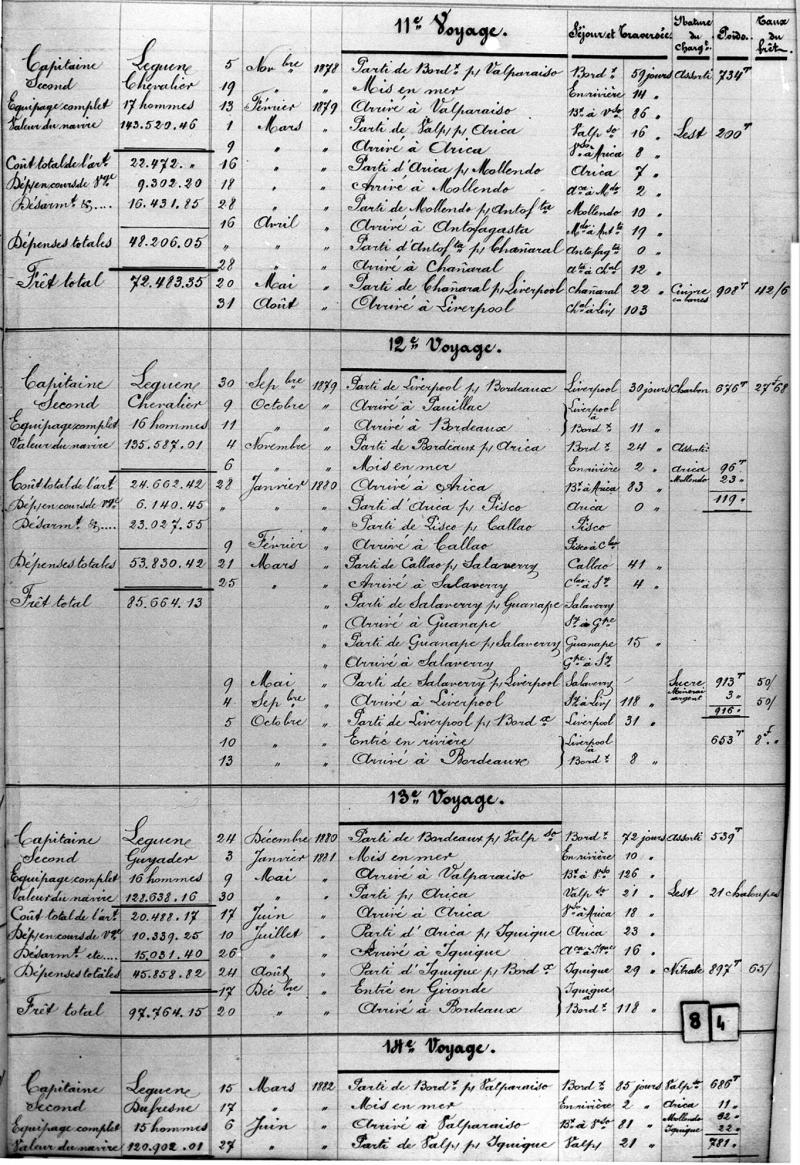 11e Voyage. Séjour et Traversée Nature du Chargt. Poids. Taux du frêt.
Capitaine Leguene 5 Novbre 1878 Parti de Bordx p/ Valparaiso Bordx 59 jours Assorti 734T
Second Chevalier 19 " " Mis en mer En rivière 14 "
Equipage complet 17 hommes 13 Février 1879 Arrivé à Valparaiso Bx à Vso 86 "
Valeur du navire 143.520.46 1 Mars " Parti de Valpso p/ Arica Valpso 16 " Lest 200T
9 " " Arrivé à Arica Vso à Arica 8 "
Coût total de l'art 22.472. " 16 " " Parti d'Arica p/ Mollendo Arica 7 "
Dép. en cours de Vge 9.302.20 18 " " Arrivé à Mollendo Aca à Mdo 2 "
Désarmt &.... 16.431.85 28 " " Parti de Mollendo p/ Antofta Mollendo 10 "
16 Avril " Arrivé à Antofagasta Mdo à Antta 19 "
Dépenses totales 48.206.05 " " " Parti d'Antofta p/ Chañaral Antofagta 0 "
28 " " Arrivé à Chañaral Ata à Chal 12 "
Frêt total 72.483.35 20 Mai " Parti de Chañaral p/ Liverpool Chañaral 22 " Cuivre en barres 908T 42/6
31 Août " Arrivé à Liverpool Chal à Liv 103
12e Voyage.
Capitaine Leguene 30 Sepbre 1879 Parti de Liverpool p/ Bordeaux Liverpool 30 jours Charbon 676T 27f68
Second Chevalier 9 Octobre " Arrivé à Pauillac Liverpool
Equipage complet 16 hommes 11 " " Arrivé à Bordeaux à Bordx 11 "
Valeur du navire 135.587.01 4 Novembre " Parti de Bordeaux p/ Arica Bordx 24 " Assorti
6 " " Mis en mer En rivière 2 " Arica 96T
Coût total de l'art 24.662.42 28 Janvier 1880 Arrivé à Arica Bx à Arica 83 " Mollendo 23 "
Dép. en cours de Vge 6.140.45 " " " Parti d'Arica p/ Pisco Arica 0 " 119 "
Désarmt &.... 23.027.55 " Parti de Pisco p/ Callao Pisco
9 Février " Arrivé à Callao Pisco à Clao
Dépenses totales 53.830.42 21 Mars " Parti de Callao p/ Salaverry Callao 41 "
25 " " Arrivé à Salaverry Clao à Sy 4 "
Frêt total 85.664.13 " Parti de Salaverry p/ Guanape Salaverry
" Arrivé à Guanape Sy à Gpe
" Parti de Guanape p/ Salaverry Guanape 15 "
" Arrivé à Salaverry Gpe à Sy
9 Mai " Parti de Salaverry p/ Liverpool Salaverry Sucre 913T 50/
4 Sepbre " Arrivé à Liverpool Sy à Liv 118 " Minerai argent 3 " 50/
916 "
5 Octobre " Parti de Liverpool p/ Bordx Liverpool 31 "
10 " " Entré en rivière Liverpool 653T 8f. "
13 " " Arrivé à Bordeaux à Bordx 8 "
13e Voyage.
Capitaine Leguene 24 Décembre 1880 Parti de Bordeaux p/ Valpso Bordx 72 jours Assorti 539T
Second Guyader 3 Janvier 1881 Mis en mer En rivière 10 "
Equipage complet 16 hommes 9 Mai " Arrivé à Valparaiso Bx à Vso 126 "
Valeur du navire 128.638.16 30 " " Parti p/ Arica Valpso 21 " Lest 21 Chaloupes
Coût total de l'art 20.488.17 17 Juin " Arrivé à Arica Vso à Arica 18 "
Dép. en cours de Vge 10.339.25 10 Juillet " Parti d'Arica p/ Iquique Arica 23 "
Désarmt etc.... 15.031.40 26 " " Arrivé à Iquique Aca à Ique 16 "
Dépenses totales 45.858.82 24 Août " Parti d'Iquique p/ Bordx Iquique 29 " Nitrate 897T 65/
17 Décbre " Entré en Gironde Iquique
Frêt total 97.764.15 20 " " Arrivé à Bordeaux à Bordx 118 "
8 4
14e Voyage.
Capitaine Leguene 15 Mars 1882 Parti de Bordx p/ Valparaiso Bordx 85 jours Valpso 686T
Second Dufresne 17 " " Mis en mer En rivière 2 " Arica 11 "
Equipage complet 15 hommes 6 Juin " Arrivé à Valparaiso Bx à Vso 81 " Mollendo 62 "
Iquique 22 "
Valeur du navire 120.902.01 27 " " Parti de Valpso p/ Iquique Valpso 21 " 781 "